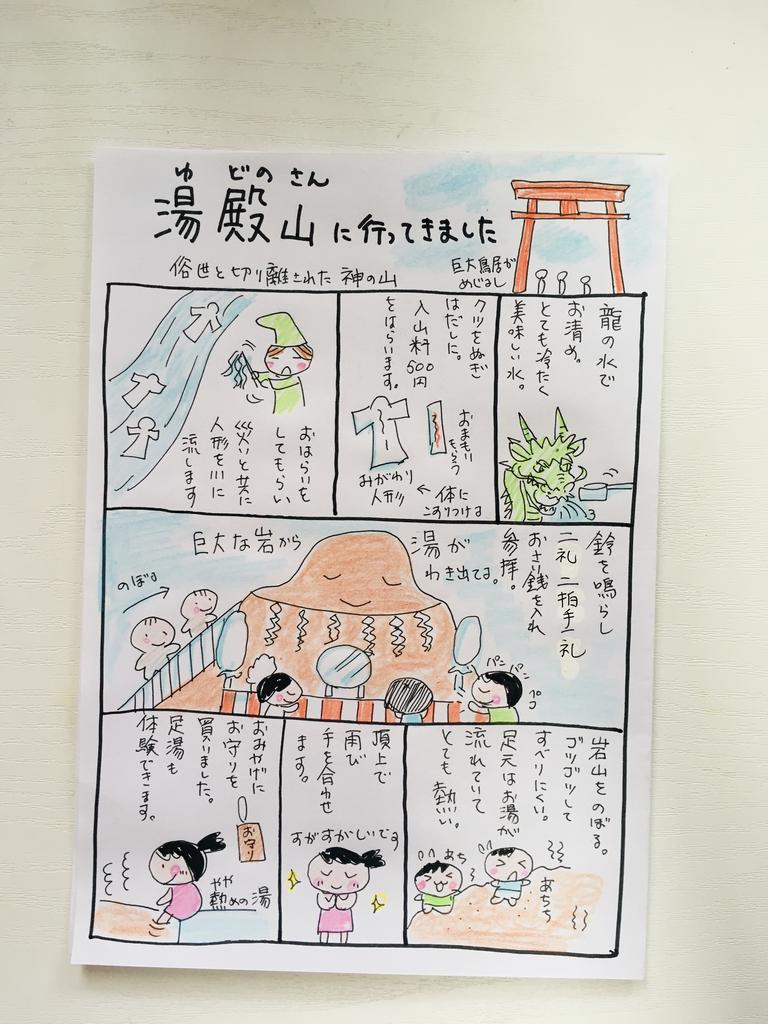 ゆどのさん
湯殿山に行ってきました
俗世と切り離された神の山
巨大鳥居が
めじるし
龍の水で
お清め。
とても冷たく
美味しい水。
クツをぬぎ
はだしに。
入山料500円
をはらいます。
おまもり
もらう
みがわり
人形
← 体に
こすりつける
おはらいを
してもらい
災いと共に
人形を川に
流します
鈴を鳴らし
二礼二拍手一礼
おさい銭を入れ
参拝。
巨大な岩から
湯が
わき出てる。
のぼる
パンパン
ペコ
岩山をのぼる。
ゴツゴツして
すべりにくい。
足元はお湯が
流れていて
とても熱い。
あち
あちち
頂上で
再び
手を合わせ
ます。
すがすがしいです
おみやげに
お守りを
買いました。
足湯も
体験できます。
お守り
やや
熱めの湯